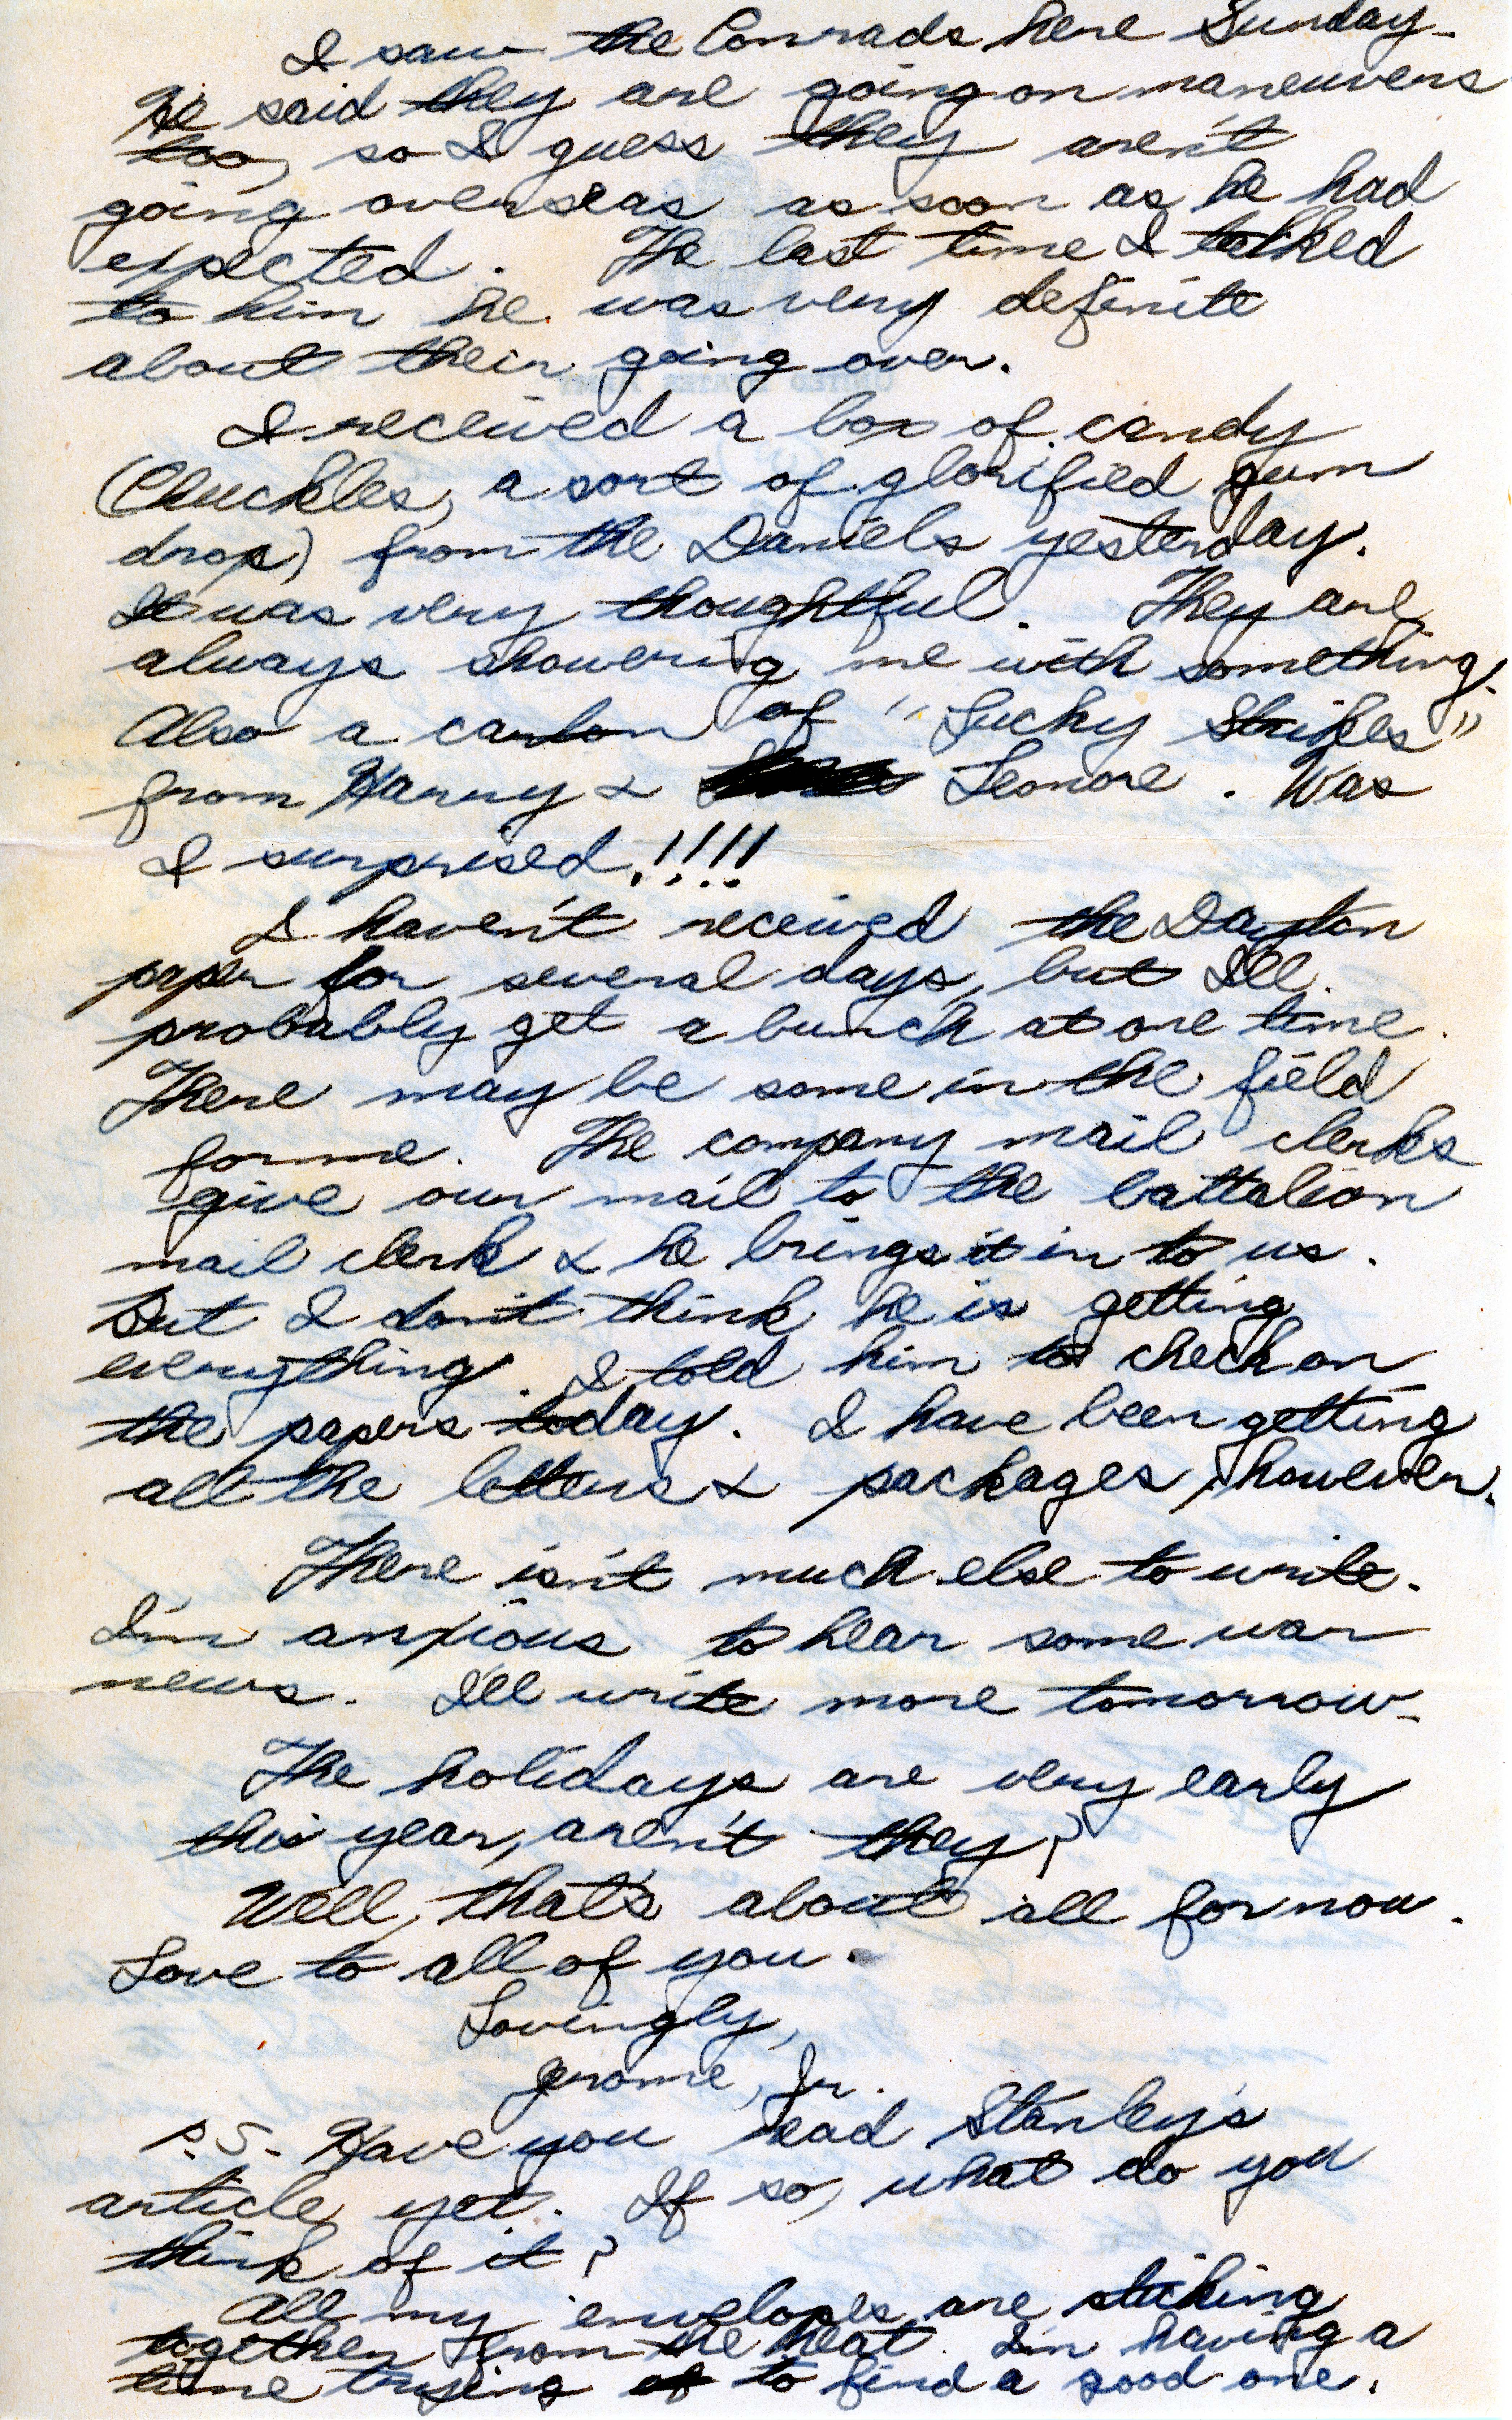 I saw the Conrads here Sunday.
He said they are going on maneuvers
too, so I guess they aren't
going overseas as soon as he had
expected. The last time I talked
to him he was very definite
about their going over.
I received a box of candy
(Chuckles, a sort of glorified gum
drop) from the Daniels yesterday.
It was very thoughtful. They are
always showering me with something.
Also a carton of "Lucky Strikes"
from Harry & Leonore. Was
I surprised!!!!
I haven't received the Dayton
paper for several days, but I'll
probably get a bunch at one time.
There may be some in the field
for me. The company mail clerks
give our mail to the battalion
mail clerk & he brings it in to us.
But I don't think he is getting
everything. I told him to check on
the papers today. I have been getting
all the letters & packages, however.
There isn't much else to write.
I'm anxious to hear some war
news. I'll write more tomorrow.
The holidays are very early
this year, aren't they?
Well, that's about all for now.
Love to all of you.
Lovingly,
Jerome, Jr.
P.S. Have you read Stanley's
article yet. If so, what do you
think of it?
All my envelopes are sticking
together from the heat. I'm having a
time trying to find a good one.